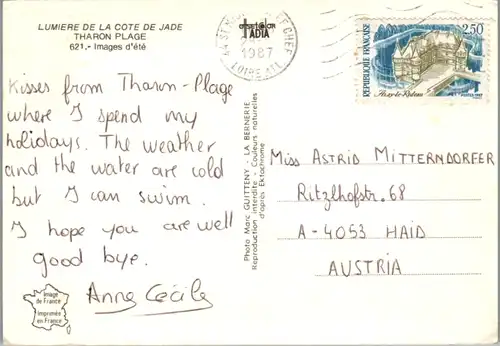 LUMIERE DE LA COTE DE JADE
THARON PLAGE
621.- Images d'été
Kisses from Tharon-Plage
where I spend my
holidays. The weather
and the water are cold
but I can swim.
I hope you are well
good bye.
Anne Cécile
Image
de France
Imprimée
en France
Photo Marc GUITTENY - LA BERNERIE
Reproduction interdite - Couleurs naturelles
d'après Ektachrome
ADIA
CHEF
1987
LOIRE ATL.
REPUBLIQUE FRANÇAISE
2,50
Azay-le-Rideau
POSTES 1987
Miss ASTRID MITTERNDORFER
Ritzlhofstr. 68
A-4053 HAID
AUSTRIA